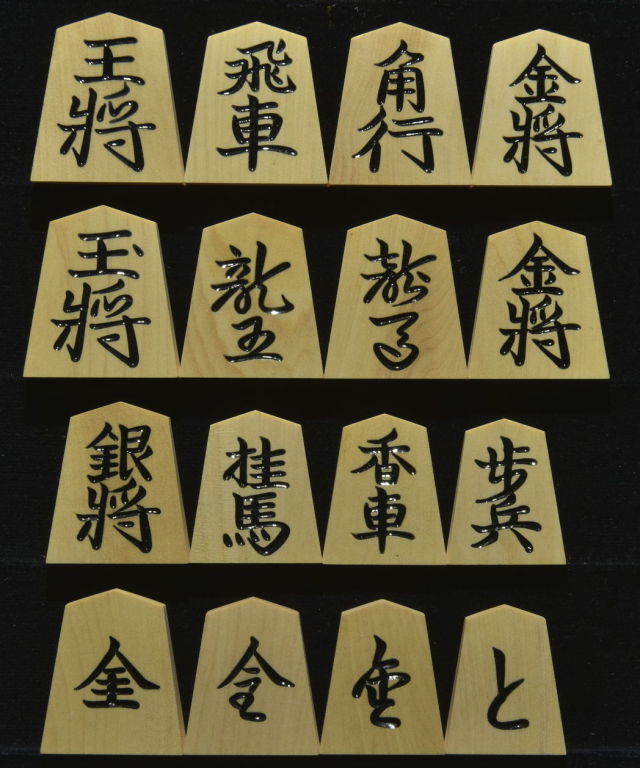 王將 飛車 角行 金將
玉將 龍王 龍馬 金將
銀將 桂馬 香車 歩兵
と